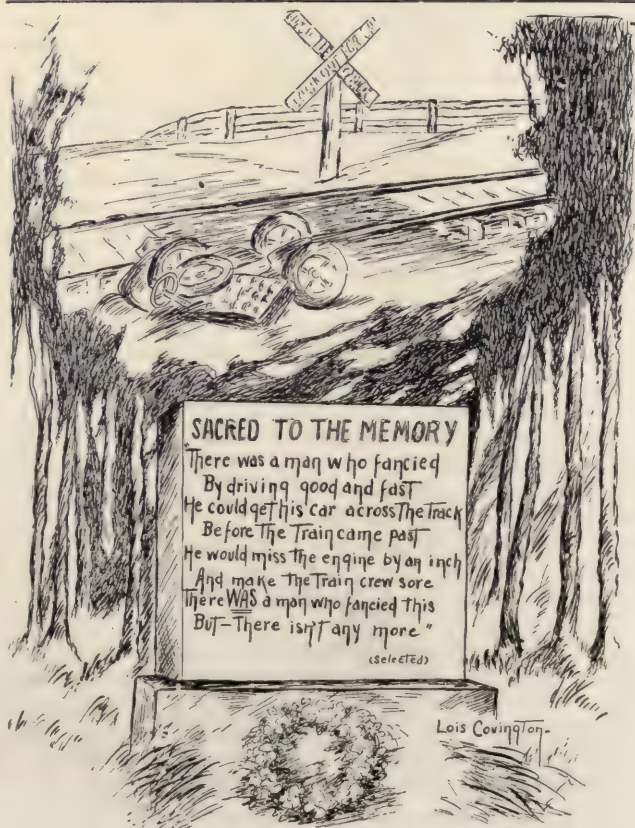 LOOK OUT FOR
SACRED TO THE MEMORY
"There was a man who fancied
By driving good and fast
He could get his car across The Track
Before The Train came past
He would miss the engine by an inch
And make The Train crew sore
There WAS a man who fancied this
But–There isn't any more"
(Selected)
Lois Covington-